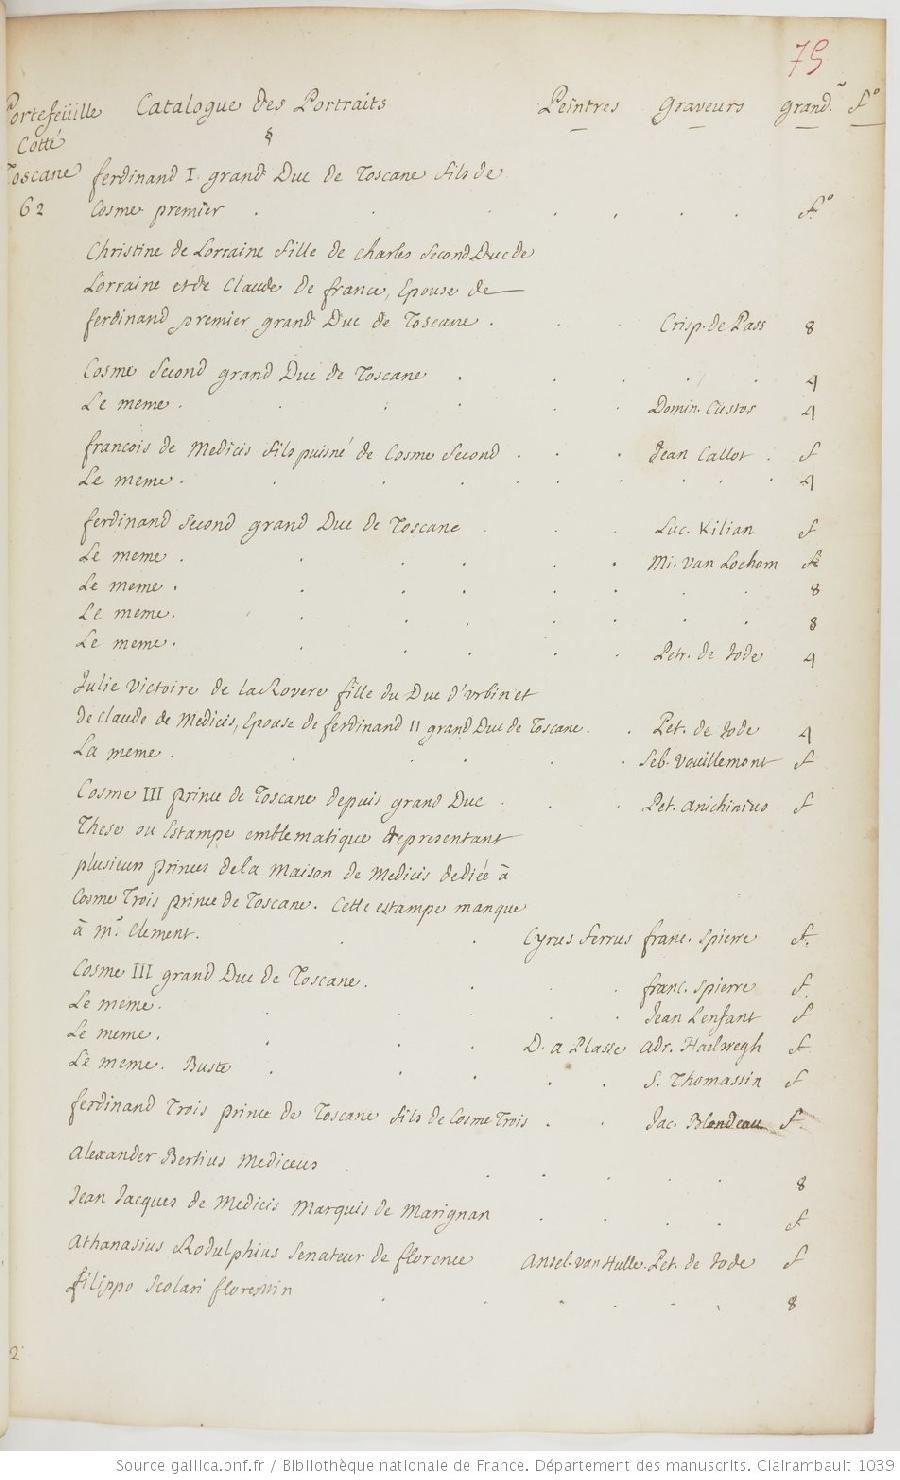 75
Portefeüille Catalogue des Portraits Peintres Graveurs grandr. fo
Cotté
Toscane ferdinand I. grand Duc de Toscane fils de
62 Cosme premier . . . . . . . fo
Christine de Lorraine fille de charles Second Duc de
Lorraine et de Claude de france, Epouse de
ferdinand premier grand Duc de Toscane . . . Crisp. de Pass 8
Cosme Second grand Duc de Toscane . . . . . 4
Le meme . . . . . . Domin. Custos 4
francois de Medicis fils puisné de Cosme Second . . . Jean Callot . f
Le meme . . . . . . . . . 4
ferdinand Second grand Duc de Toscane . . . Luc. Kilian f
Le meme . . . . . . Mi. van Lochom f
Le meme . . . . . . . . 8
Le meme . . . . . . . 8
Le meme . . . . . . Petr. de Jode 4
Julie Victoire de la Rovere fille du Duc d'Urbin et
de Claude de Medicis, Epouse de ferdinand II grand Duc de Toscane . . Pet. de Jode 4
La meme . . . . . . Seb. Vouillemont f
Cosme III prince de Toscane depuis grand Duc . . . Pet. f
These ou Estampe emblematique representant
plusieurs princes de la maison de Medicis dediée à
Cosme Trois prince de Toscane. Cette estampe manque
à mr. Clement. . . Cyrus Ferrus franc. Spierre f.
Cosme III grand Duc de Toscane . . . franc. Spierre f.
Le meme . . . . . Jean Lenfant f
Le meme . . . . D. a Plasse Adr. f
Le meme. Buste . . . . . . S. Thomassin f
ferdinand Trois prince de Toscane fils de Cosme Trois . . Jac. Blondeau f.
Alexander Bertius Mediceus . . . . . . 8
Jean Jacques de Medicis Marquis de Marignan . . . . f
Athanasius Rodulphius Senateur de florence Ansel. van Hulle. Pet. de Jode f
filippo Scolari florentin . . . . . . 8
2
Source gallica.bnf.fr / Bibliothèque nationale de France. Département des manuscrits. Clairambault 1039